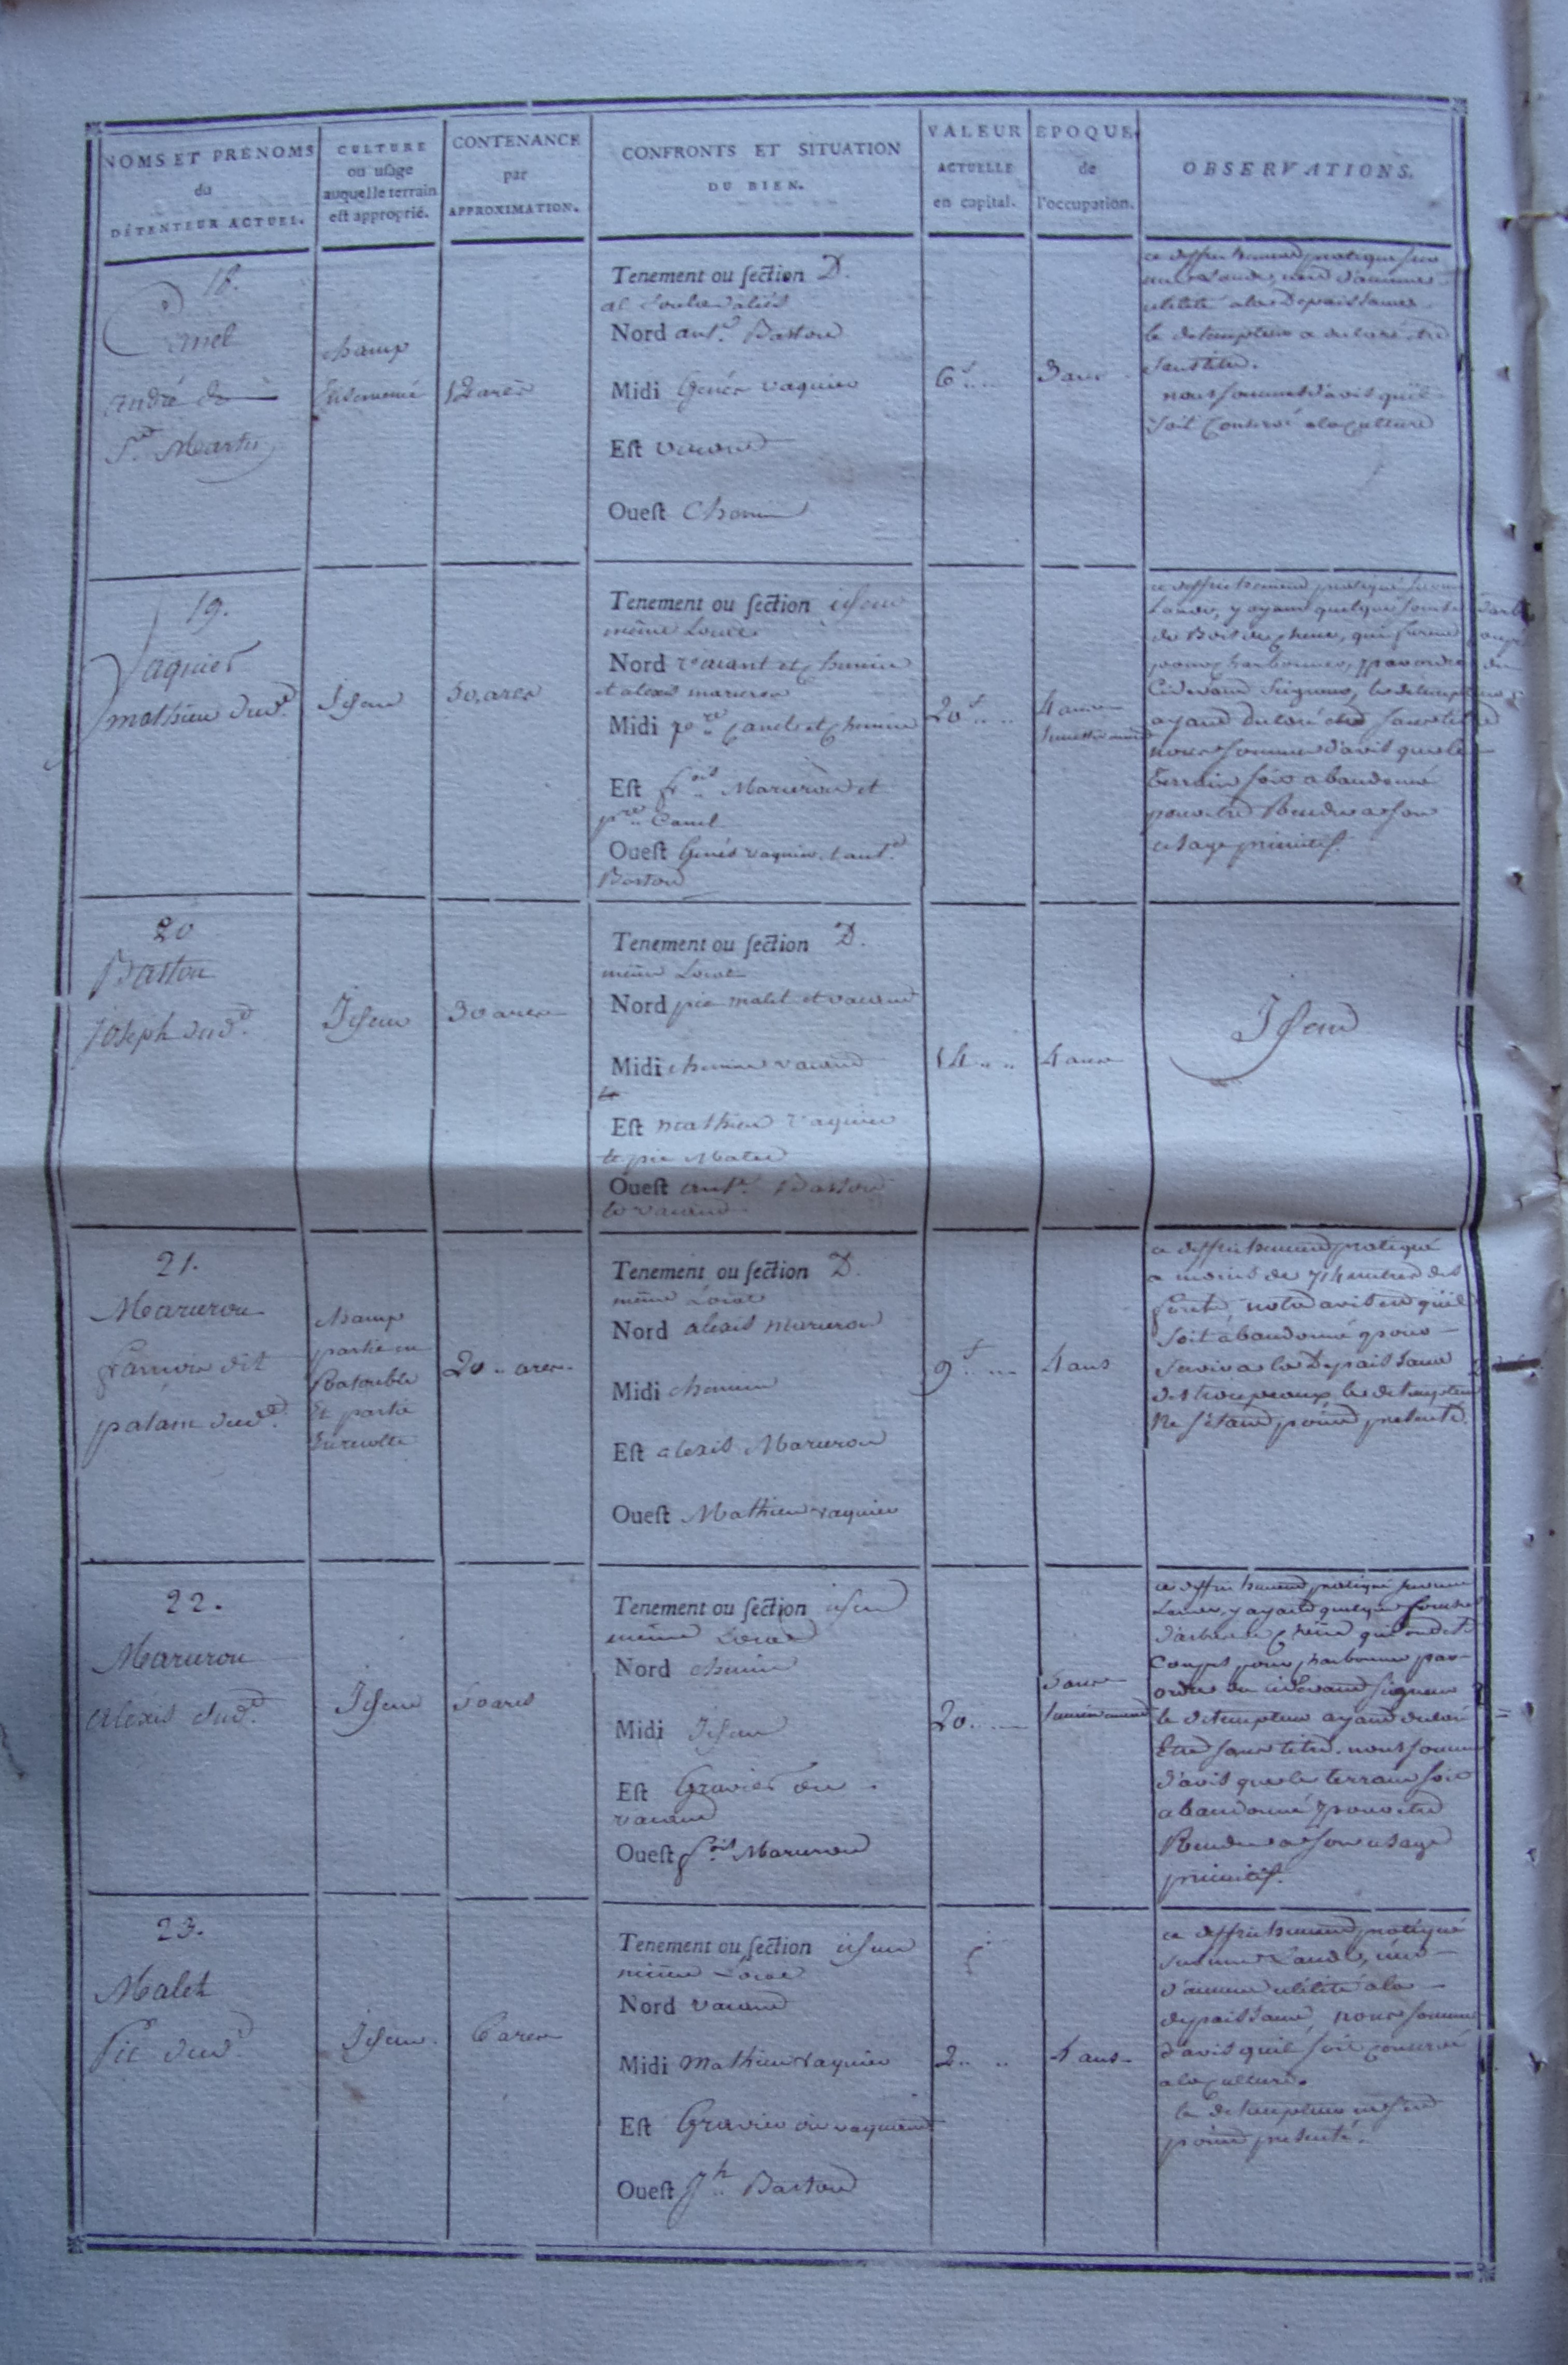 NOMS ET PRÉNOMS
du
DÉTENTEUR ACTUEL.
CULTURE
ou uſage
auquel le terrain
eſt approprié.
CONTENANCE
par
APPROXIMATION.
CONFRONTS ET SITUATION
DU BIEN.
VALEUR
ACTUELLE
en capital.
ÉPOQUE
de
l'occupation.
OBSERVATIONS.
18.
Canel
André de
St. Martin
champ
Ensemencé
12 ares
Tenement ou ſection D.
al
Nord ant.e Bastou
Midi Genés vaquier
Eſt vacand
Oueſt Chemin
6 ..
3 ans
ce deffrichement pratiqué sur
une Lande, n'est d'aucune
utilité a la Depaissance
le detempteur a declaré etre
sans titre.
nous sommes d'avis qu'il
soit Conservé a la Culture
19.
Vaquier
mathieu dud.
Idem
50, ares
Tenement ou ſection idem
même Local
Nord vacant et chemin
et alexis marurou
Midi p.re Canel et Chemin
Eſt fr.ois Marurou et
p.re Canel
Oueſt Genés vaquier, et ant.e
Bastou
20 .. ..
4 ans
ce deffrichement pratiqué sur une
Lande, y ayant quelques souches d'arb
de Bois de chene, qui furent coupé
pour charbonner, par ordre du
Cidevant Seigneur, le detempteur
ayant declaré etre sans titre
nous sommes d'avis que le
terrain soit abandonné
pour etre Rendu a son
usage primitif.
20
Bastou
joseph dud.
Idem
30 ares
Tenement ou ſection D.
même Local
Nord pie malet et vacand
Midi chemin vacand
Eſt mathieu vaquier
et pie Malet
Oueſt ant.e Bastou
et vacand.
14 .. ..
4 ans
Idem
21.
Marurou
francois dit
patam dud.
champ
partie en
Ratouble
Et partie
En recolte
20 .. ares.
Tenement ou ſection D.
même Local
Nord alexis marurou
Midi chemin
Eſt alexis Marurou
Oueſt Mathieu vaquier
9 .. ..
4 ans
ce deffrichement pratiqué
a moins de 714 metres des
forets, notre avis est qu'il
soit abandonné pour
servir a la Depaissance
des troupeaux, le detempteur
Ne s'étant point presenté.
22.
Marurou
alexis dud.
Idem
50 ares
Tenement ou ſection idem
même Local
Nord chemin
Midi Idem
Eſt Gravier ou
vacand
Oueſt f.ois Marurou
20 .. ..
ce deffrichement pratiqué sur une
Lande, y ayant quelques souches
d'arbres chêne qui ont eté
Coupés pour charbonner par
ordre du cidevant seigneur
le detempteur ayant declaré
Etre sans titre. nous sommes
d'avis que le terrain soit
abandonné pour etre
Rendu a son usage
primitif.
23.
Malet
Pie dud.
Idem.
6 ares
Tenement ou ſection idem
même Local
Nord vacand
Midi Mathieu vaquier
Eſt Gravier ou vaquand
Oueſt J.h Bastou
2 .. ..
4 ans
ce deffrichement pratiqué
sur une Lande, n'est
d'aucune utilité a la
depaissance, nous sommes
d'avis qu'il soit Conservé
a la Culture.
le detempteur ne s'est
point presenté.